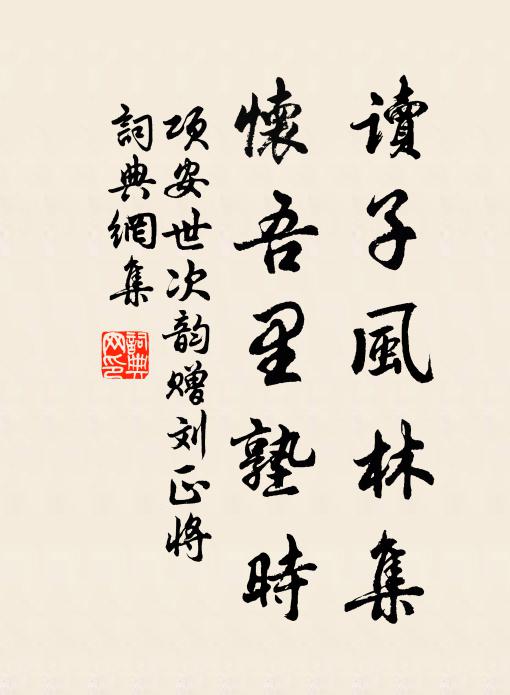 讀子風林集
懷吾里塾時
项安世次韵赠刘正将
詞典網集
詞典网印